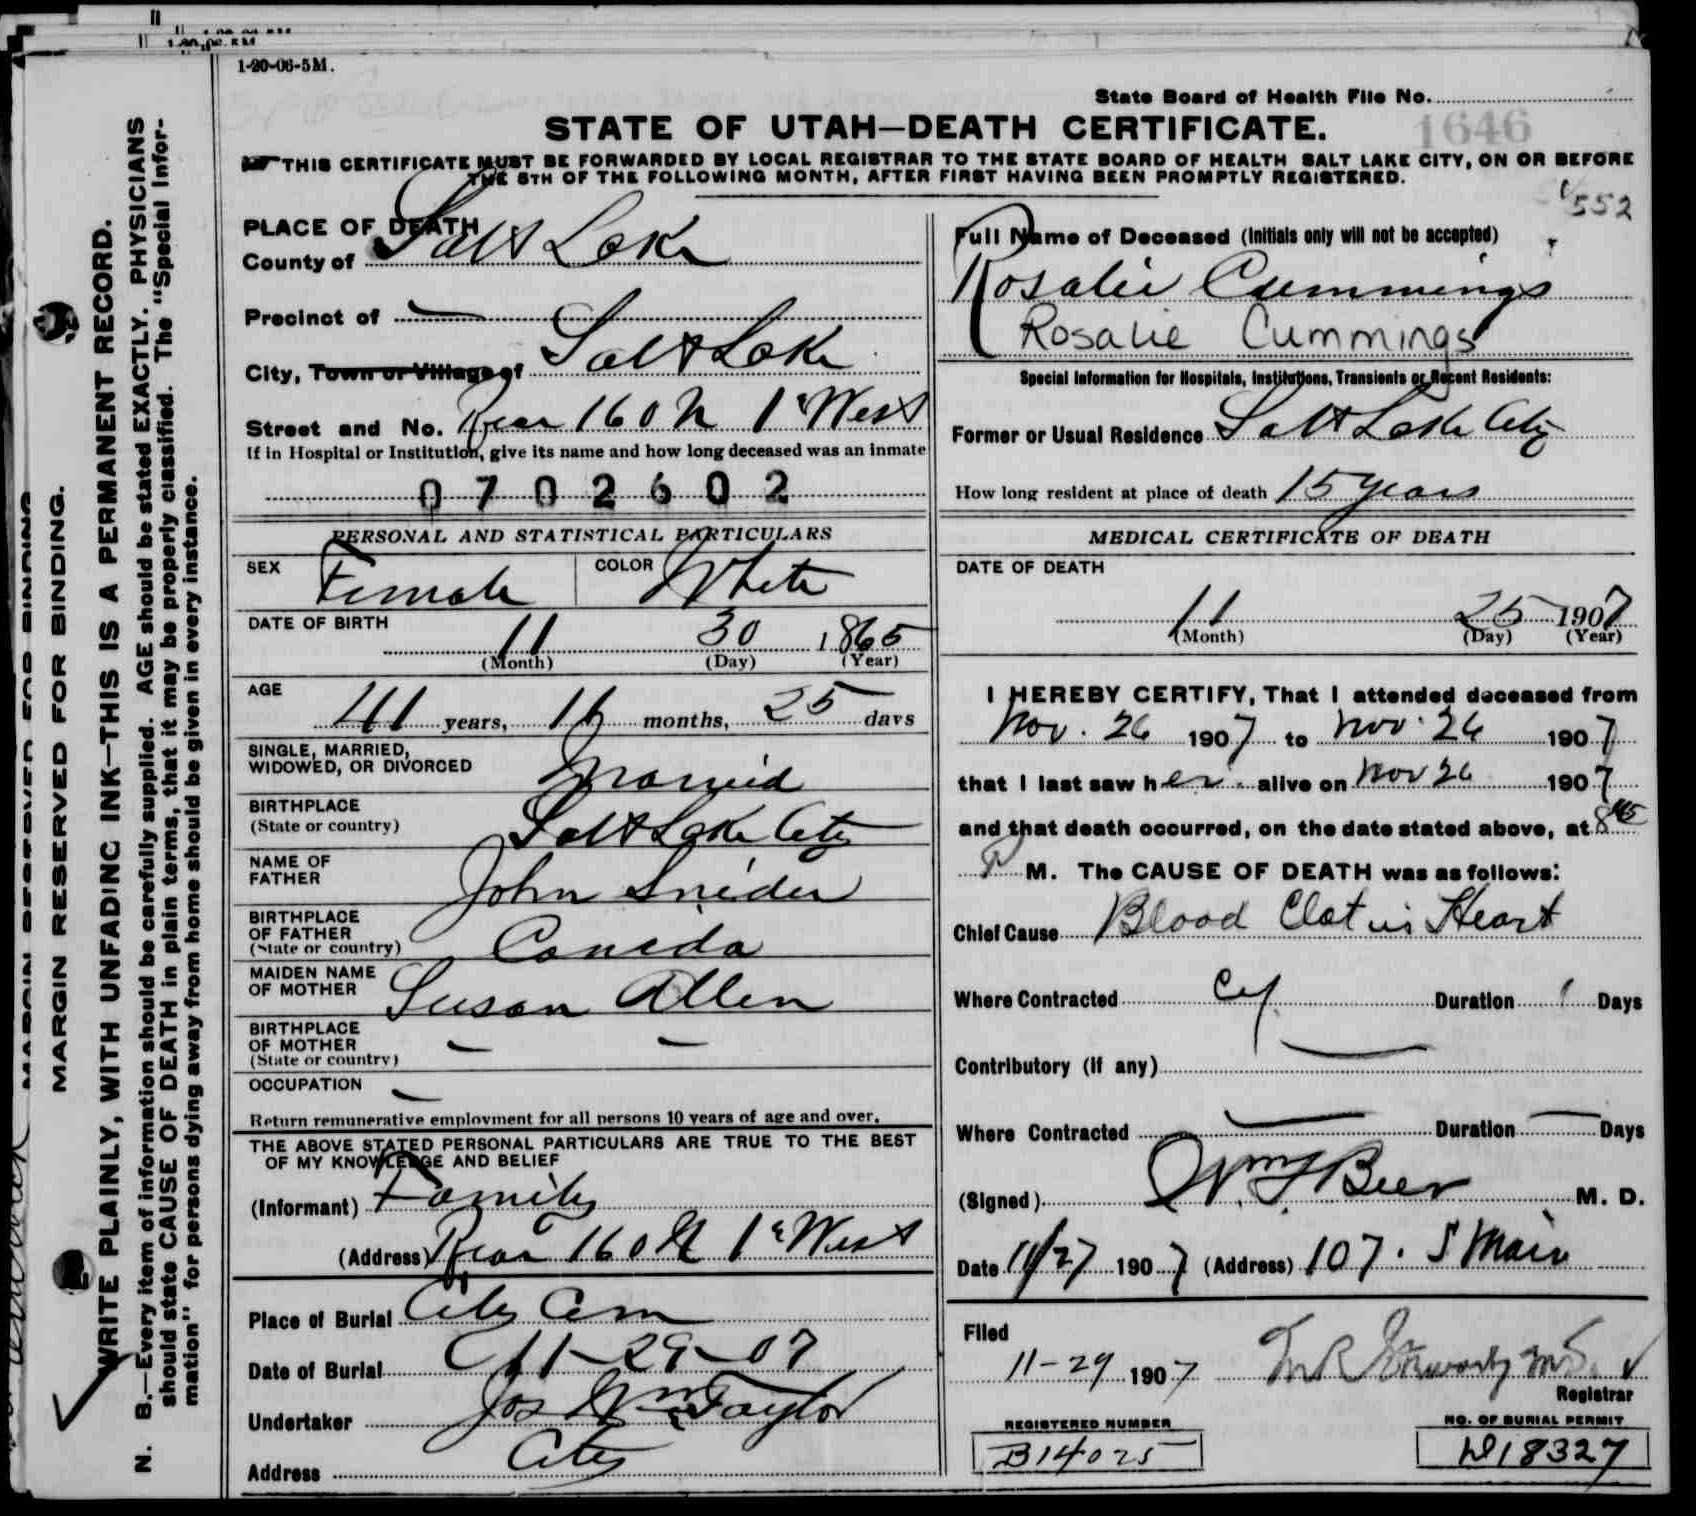 1-20-06-5M.
State Board of Health File No.
1646
STATE OF UTAH—DEATH CERTIFICATE.
THIS CERTIFICATE MUST BE FORWARDED BY LOCAL REGISTRAR TO THE STATE BOARD OF HEALTH SALT LAKE CITY, ON OR BEFORE
THE 5TH OF THE FOLLOWING MONTH, AFTER FIRST HAVING BEEN PROMPTLY REGISTERED.
552
MARGIN RESERVED FOR BINDING.
WRITE PLAINLY, WITH UNFADING INK—THIS IS A PERMANENT RECORD.
N. B.—Every item of information should be carefully supplied. AGE should be stated EXACTLY. PHYSICIANS
should state CAUSE OF DEATH in plain terms, that it may be properly classified. The "Special Infor-
mation" for persons dying away from home should be given in every instance.
PLACE OF DEATH
County of Salt Lake
Precinct of —
City, Town or Village of Salt Lake
Street and No. Rear 160 N 1st West
If in Hospital or Institution, give its name and how long deceased was an inmate
0702602
PERSONAL AND STATISTICAL PARTICULARS
SEX Female COLOR White
DATE OF BIRTH 11 30 1865
(Month) (Day) (Year)
AGE 41 years, 11 months, 25 days
SINGLE, MARRIED,
WIDOWED, OR DIVORCED Married
BIRTHPLACE
(State or country) Salt Lake City
NAME OF
FATHER John Snider
BIRTHPLACE
OF FATHER
(State or country) Canada
MAIDEN NAME
OF MOTHER Susan Allen
BIRTHPLACE
OF MOTHER — —
(State or country)
OCCUPATION —
Return remunerative employment for all persons 10 years of age and over.
THE ABOVE STATED PERSONAL PARTICULARS ARE TRUE TO THE BEST
OF MY KNOWLEDGE AND BELIEF
(Informant) Family
(Address) Rear 160 N 1st West
Place of Burial City Cem
Date of Burial 11-29-07
Undertaker Jos Wm Taylor
Address City
Full Name of Deceased (Initials only will not be accepted)
Rosalie Cummings
Rosalie Cummings
Special Information for Hospitals, Institutions, Transients or Recent Residents:
Former or Usual Residence Salt Lake City
How long resident at place of death 15 years
MEDICAL CERTIFICATE OF DEATH
DATE OF DEATH
11 25 1907
(Month) (Day) (Year)
I HEREBY CERTIFY, That I attended deceased from
Nov. 26 1907 to Nov. 26 1907
that I last saw her alive on Nov 26 1907
and that death occurred, on the date stated above, at 8 45
P M. The CAUSE OF DEATH was as follows:
Chief Cause Blood Clot in Heart
Where Contracted Cy. Duration 1 Days
Contributory (if any) —
Where Contracted — Duration — Days
(Signed) Wm F Beer M. D.
Date 11/27 1907 (Address) 107. S Main
Filed
11-29 1907
Registrar
REGISTERED NUMBER
B14025
NO. OF BURIAL PERMIT
D18327